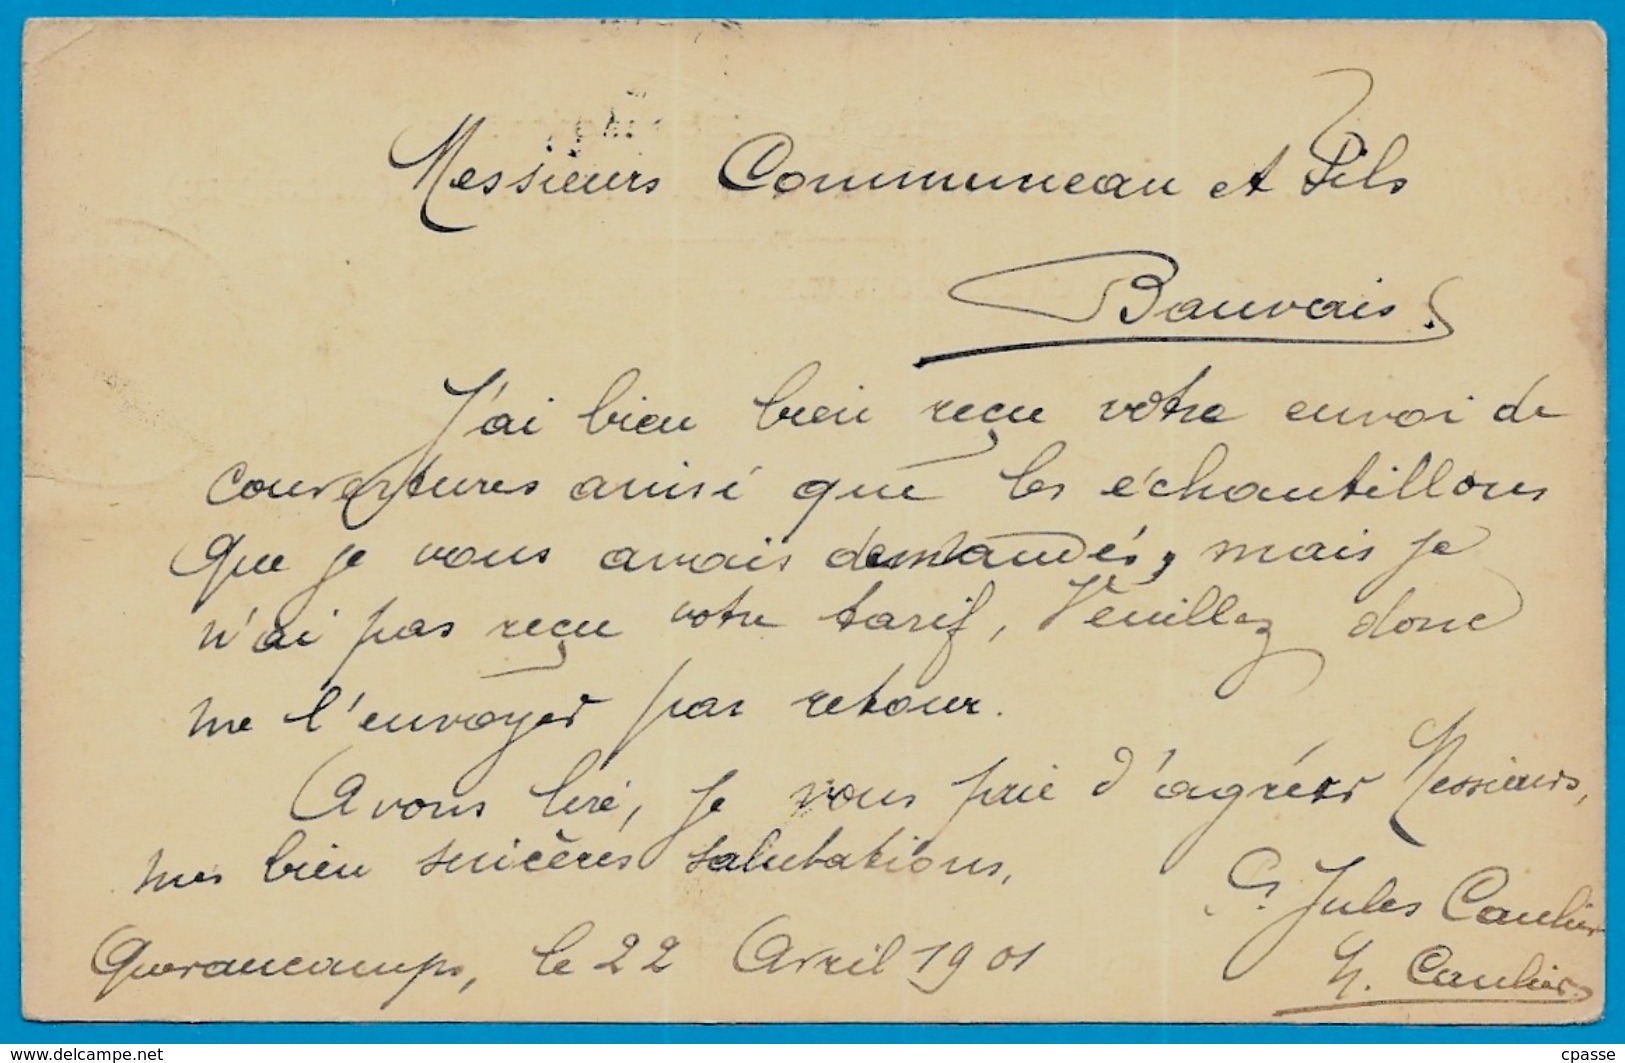 Messieurs Communeau et Fils
Bauvais.
J'ai bien bien reçu votre envoi de
couvertures ainsi que les échantillons
que je vous avais demandés, mais je
n'ai pas reçu votre tarif, Veuillez donc
me l'envoyer par retour.
A vous lire, je vous prie d'agréer Messieurs,
mes bien sincères salutations,
P. Jules Caulier
Quevaucamps, le 22 Avril 1901
H. Caulier
www.delcampe.net
cpasse